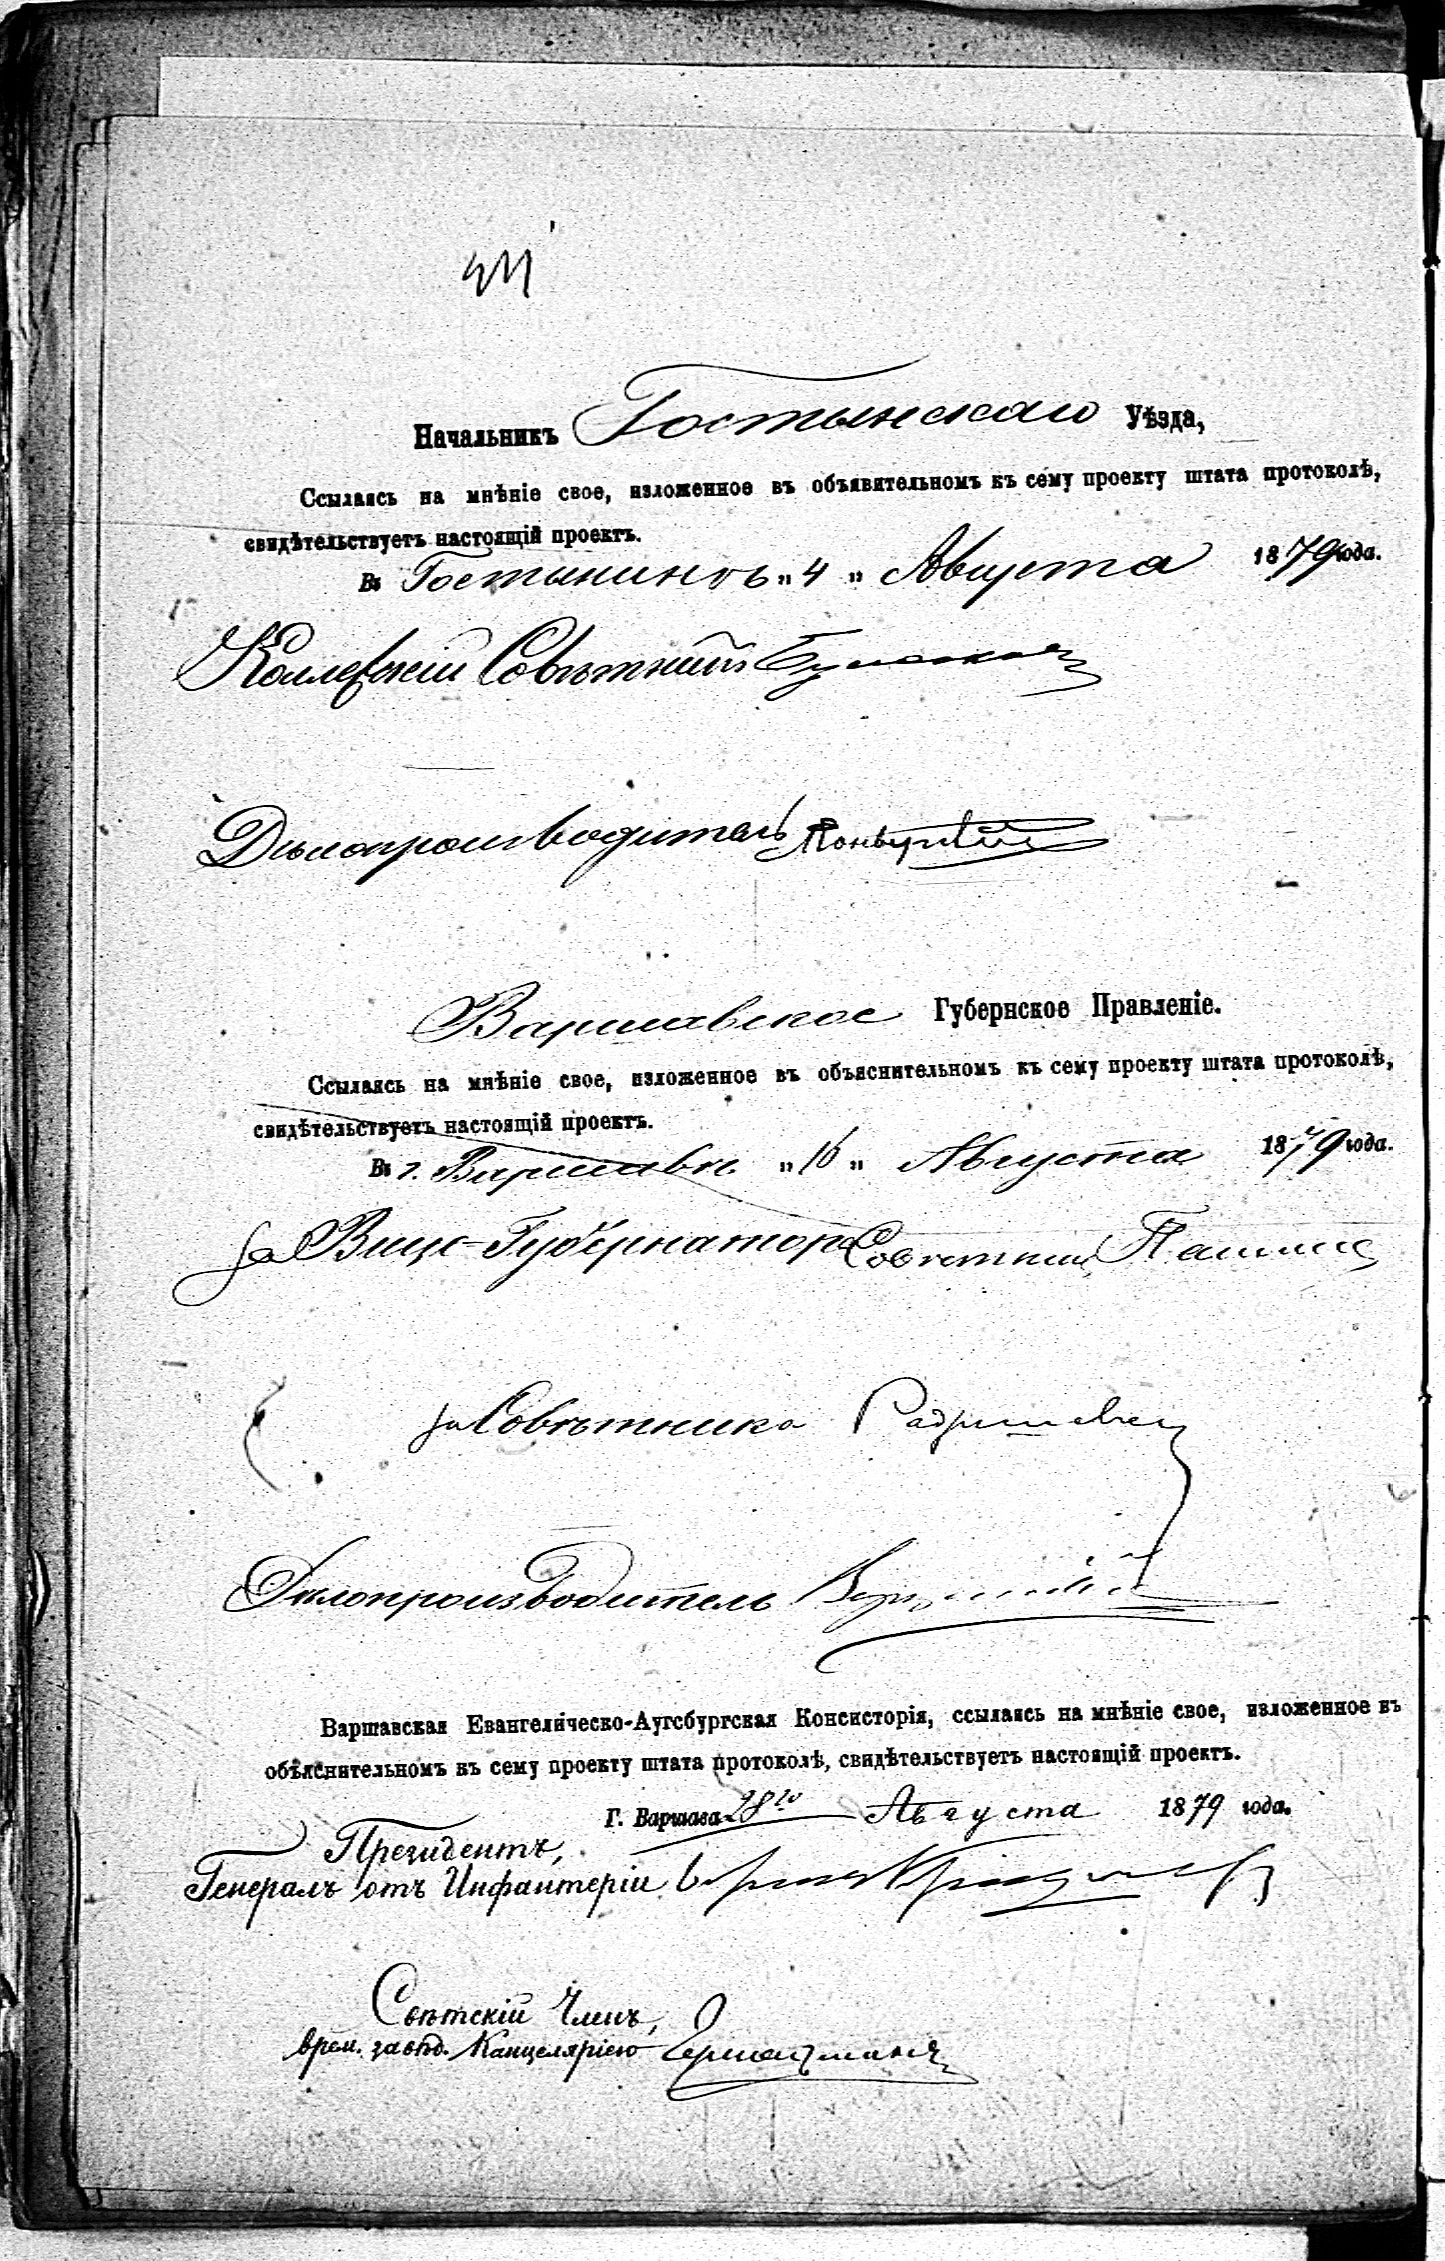 Начальникъ Гостынскаго Уѣзда,
Ссылаясь на мнѣніе свое, изложенное въ объявительномъ къ сему проекту штата протоколѣ,
свидѣтельствуетъ настоящій проектъ.
Въ Гостынинѣ „4„ Августа 1879 года.
Совѣтникъ
Дѣлопроизводитель
Варшавское Губернское Правленіе.
Ссылаясь на мнѣніе свое, изложенное въ объяснительномъ къ сему проекту штата протоколѣ,
свидѣтельствуетъ настоящій проектъ.
Въ г. Варшавѣ „16„ Августа 1879 года.
за Вице-Губернатора Совѣтникъ
за Совѣтника
Дѣлопроизводитель
Варшавская Евангелическо-Аугсбургская Консисторія, ссылаясь на мнѣніе свое, изложенное въ
объяснительномъ къ сему проекту штата протоколѣ, свидѣтельствуетъ настоящій проектъ.
Г. Варшава 28го Августа 1879 года.
Президентъ,
Генералъ отъ Инфантеріи
Свѣтскій Членъ,
врем. завѣд. Канцеляріею